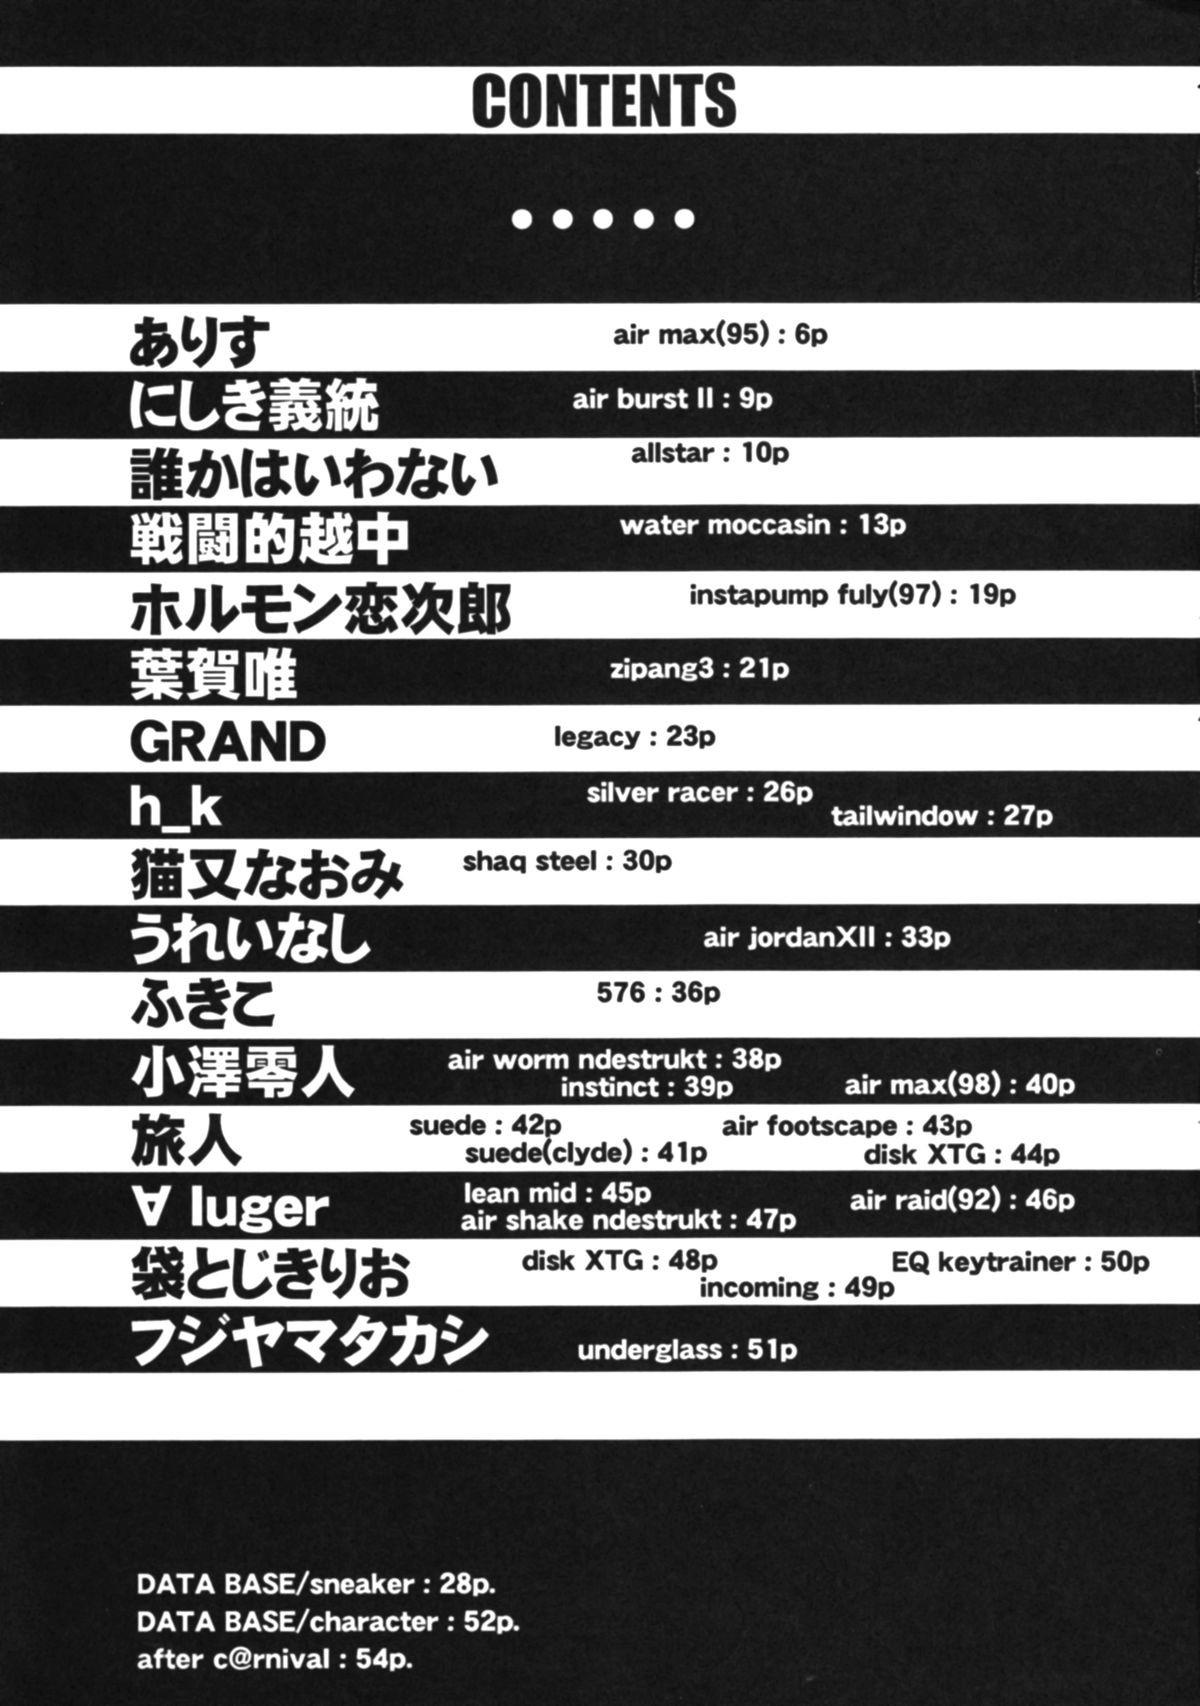 CONTENTS
ありす air max(95) : 6p
にしき義統 air burst II : 9p
誰かはいわない allstar : 10p
戦闘的越中 water moccasin : 13p
ホルモン恋次郎 instapump fuly(97) : 19p
葉賀唯 zipang3 : 21p
GRAND legacy : 23p
h_k silver racer : 26p
tailwindow : 27p
猫又なおみ shaq steel : 30p
うれいなし air jordanXII : 33p
ふきこ 576 : 36p
小澤零人 air worm ndestrukt : 38p
instinct : 39p air max(98) : 40p
旅人 suede : 42p air footscape : 43p
suede(clyde) : 41p disk XTG : 44p
∀ luger lean mid : 45p air raid(92) : 46p
air shake ndestrukt : 47p
袋とじきりお disk XTG : 48p EQ keytrainer : 50p
incoming : 49p
フジヤマタカシ underglass : 51p
DATA BASE/sneaker : 28p.
DATA BASE/character : 52p.
after c@rnival : 54p.